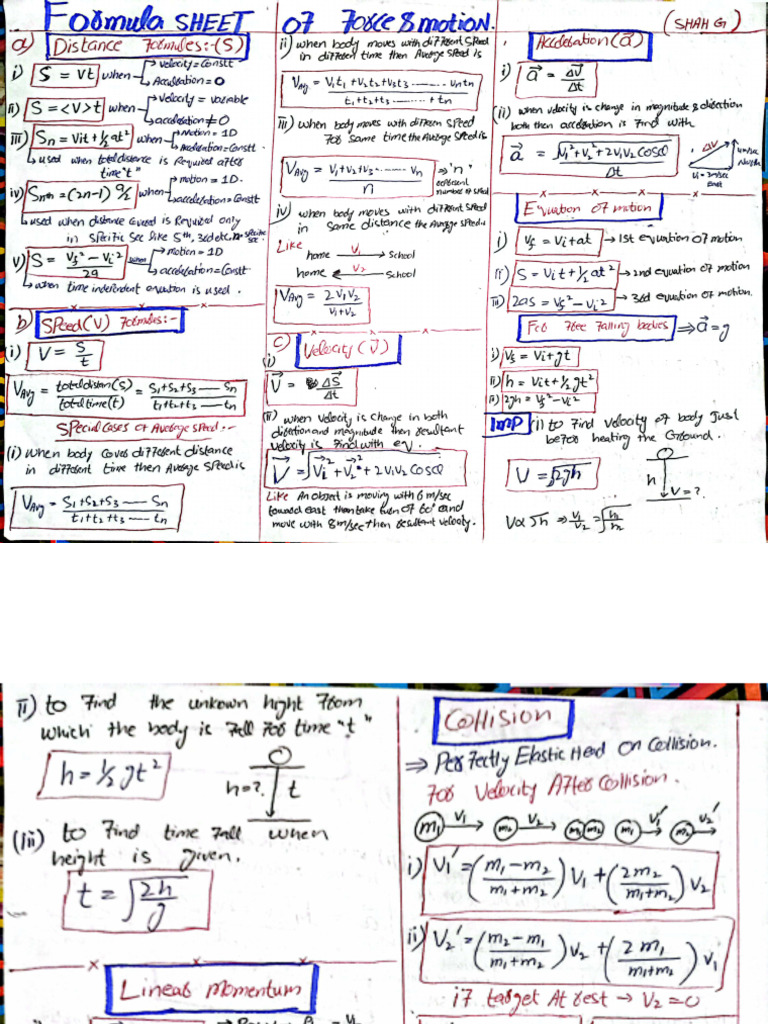 Formula SHEET of Force & motion.
(SHAH G)
a) Distance Formules:-(S)
i) S = Vt when → velocity = Constt
→ Acceleration = 0
ii) S = <V>t when → velocity = variable
→ acceleration ≠ 0
iii) Sn = Vit + 1/2 at² when → Motion = 1D
→ Acceleration = Constt.
→ used when total distance is Required after
time "t"
iv) Snth = (2n-1) a/2 when → motion = 1D.
→ acceleration = Constt
→ used when distance covered is Required only
in specific sec like 5th, 3rd etc.
v) S = (Vf² - Vi²)/2a when → motion = 1D
→ acceleration = Constt
→ when time independent equation is used.
b) Speed (V) Formules:-
i) V = S/t
VAvg = total distan(S)/total time(t) = (S1+S2+S3 --- Sn)/(t1+t2+t3 --- tn)
Special Cases of Average speed:-
(i) when body covers different distance
in different time then Average speed is
VAvg = (S1+S2+S3 --- Sn)/(t1+t2+t3 --- tn)
ii) when body moves with different speed
in different time then Average speed is
VAvg = (V1t1 + V2t2 + V3t3 ........ vntn)/(t1+t2+t3 ...... + tn)
iii) when body moves with differen speed
For same time the Average speed is
VAvg = (V1+V2+V3 ....... Vn)/n ⇒ "n"
represent
number of speed
iv) when body moves with different speed
in same distance the Average speed is
Like
home V1→ School
home ←V2 School
VAvg = 2V1V2/(V1+V2)
c) Velocity (V⃗)
(i)
V⃗ = ΔS⃗/Δt
(ii) when velocity is change in both
direction and magnitude then resultant
velocity is find with eq.
V⃗ = √(V1² + V2² + 2V1V2 cosθ)
Like An object is moving with 6 m/sec
toward east then take turn of 60° and
move with 8 m/sec then resultant velocity.
Acceleration (a⃗)
i) a⃗ = ΔV⃗/Δt
(ii) when velocity is change in magnitude & direction
both then acceleration is find with
a⃗ = √(V1² + V2² + 2V1V2 cosθ)/Δt
ΔV
North
East
Equation of motion
i) Vf = Vi + at → 1st equation of motion
ii) S = Vit + 1/2 at² → 2nd equation of motion
iii) 2as = Vf² - Vi² → 3rd equation of motion.
For free falling bodies ⇒ a⃗ = g
i) Vf = Vi + gt
ii) h = Vit + 1/2 gt²
iii) 2gh = Vf² - Vi²
IMP (i) to find velocity of body just
befor heating the Ground.
V = √2gh
h
V = ?
V∝√h ⇒ V1/V2 = √(h1/h2)
ii) to find the unkown hight from
which the body is fell for time "t"
h = 1/2 gt²
h = ?
t
(iii) to find time fall when
height is given.
t = √(2h/g)
Linear Momentum
Collision
⇒ Perfectly Elastic Head on Collision.
For Velocity After Collision.
m1 V1→ m2 V2→ m1 m2 m1 V1'→ m2 V2'→
i) V1' = ((m1 - m2)/(m1 + m2)) V1 + (2m2/(m1+m2)) V2
ii) V2' = ((m2 - m1)/(m1 + m2)) V2 + (2m1/(m1+m2)) V1
if target At rest → V2 = 0